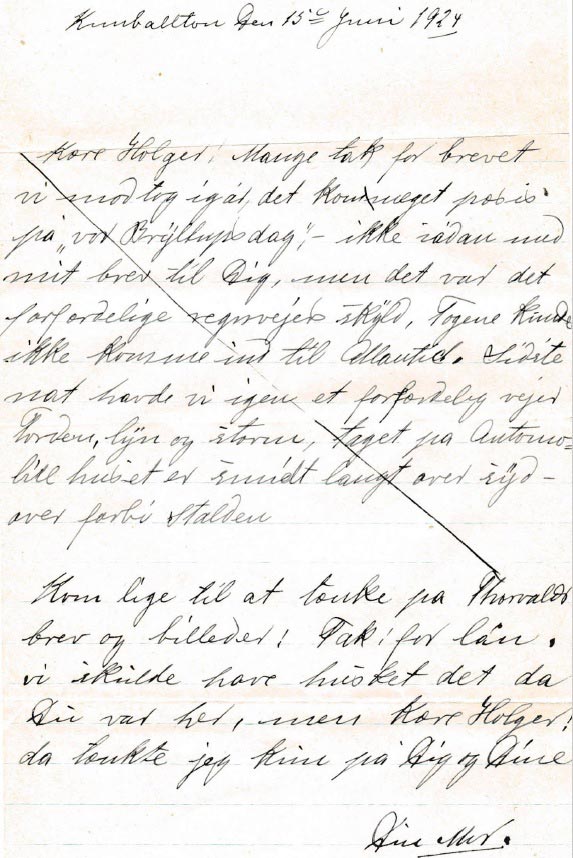 Kimballton Den 15de Juni 1924
Kære Holger! Mange tak for brevet
vi modtog igår, det kom meget præsis
på "vor Bryllupsdag",- ikke sådan med
mit brev til Dig, men det var det
forfærdelige regnvejrs skyld, Togene kunde
ikke komme ind til Atlantic. Sidste
nat havde vi igen et forfærdelig vejr
Torden, lyn og storm, taget på Automo=
bill huset er smidt langt over syd-
over forbi Stalden
Kom lige til at tænke på Thorvalds
brev og billeder! Tak! for lån.
vi skulde have husket det da
Du var her, men Kære Holger!
da tænkte jeg kun på Dig og Dine
Din Mor.